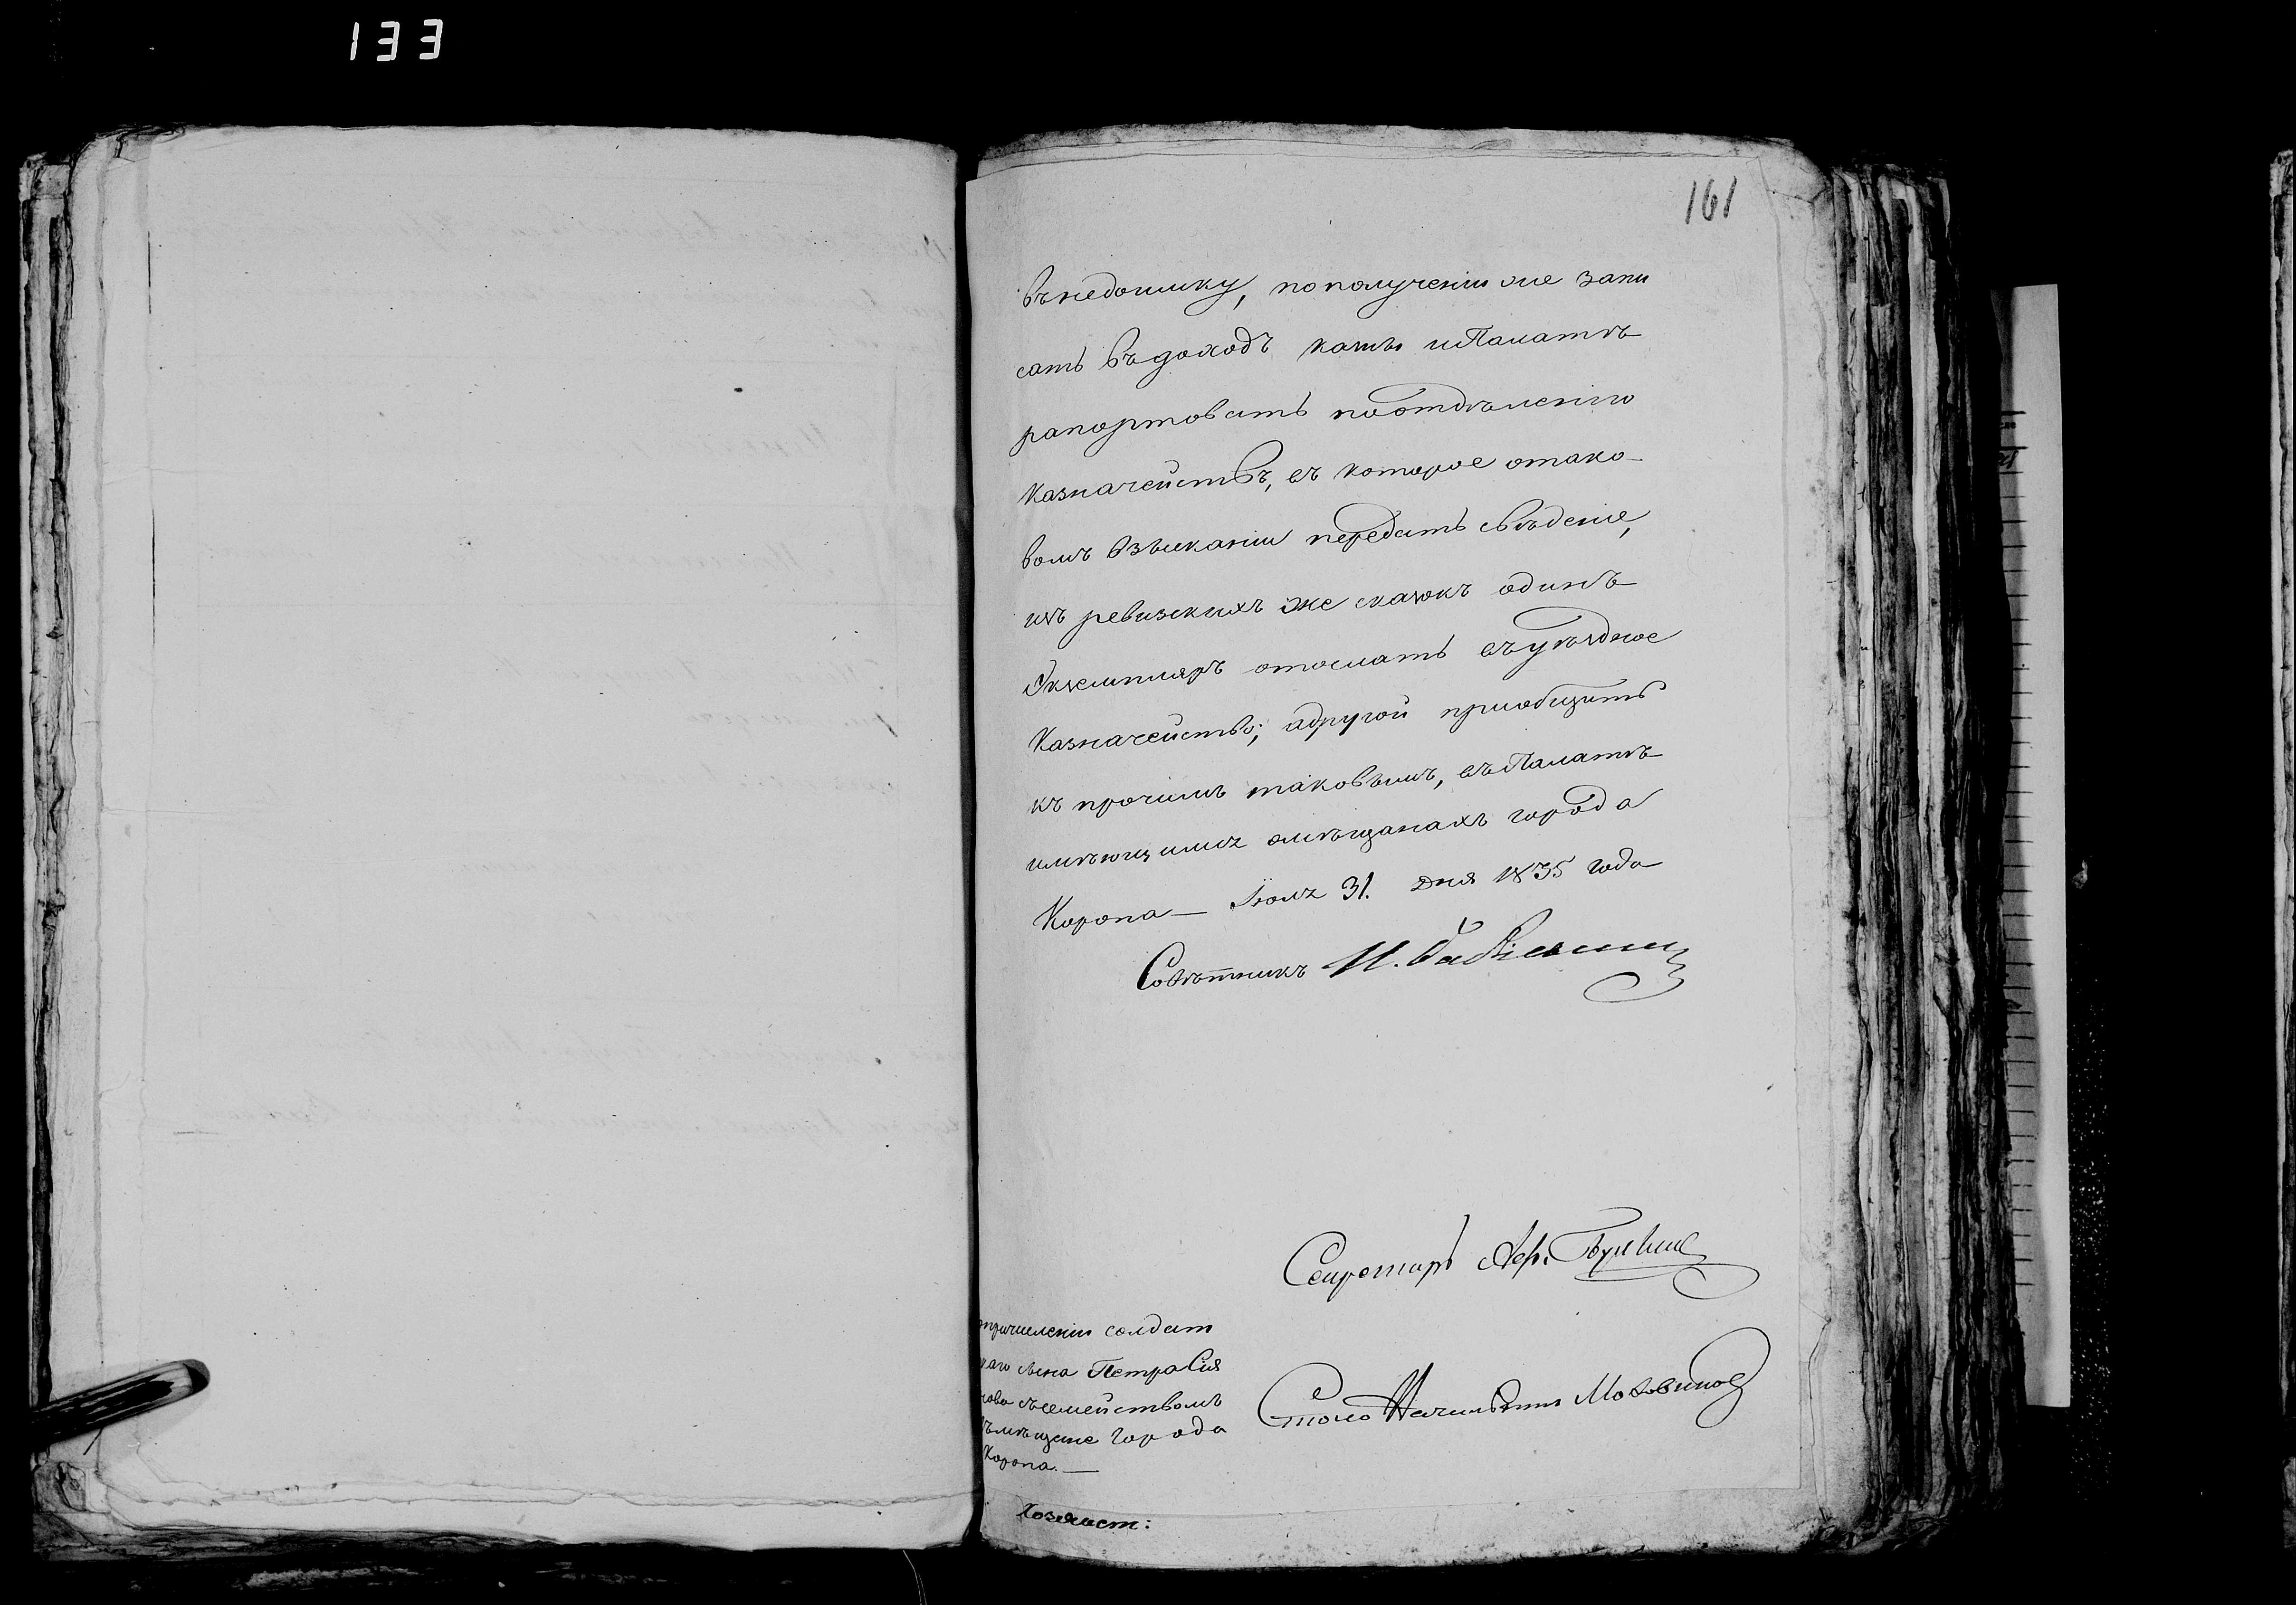 133
161
въ недоимку, по получении же запи
сать въ доходъ казны и Палатѣ
рапортовать по отдѣленію
казначействъ, въ которое о тако-
вомъ взысканіи передать свѣденіе,
изъ ревизскихъ же сказокъ одинъ
Экземпляръ отослать въ уѣздное
Казначейство; а другой приобщить
къ прочимъ таковымъ, въ Палатѣ
имѣющимъ о мѣщанахъ города
Коропа — Іюля 31. дня 1835 года
Совѣтникъ И.
Секретарь
Столоначальникъ
о причисленіи солдат
скаго сына Петра Сия
нова съ семействомъ
въ мѣщане города
Коропа. —
Хозяйст: